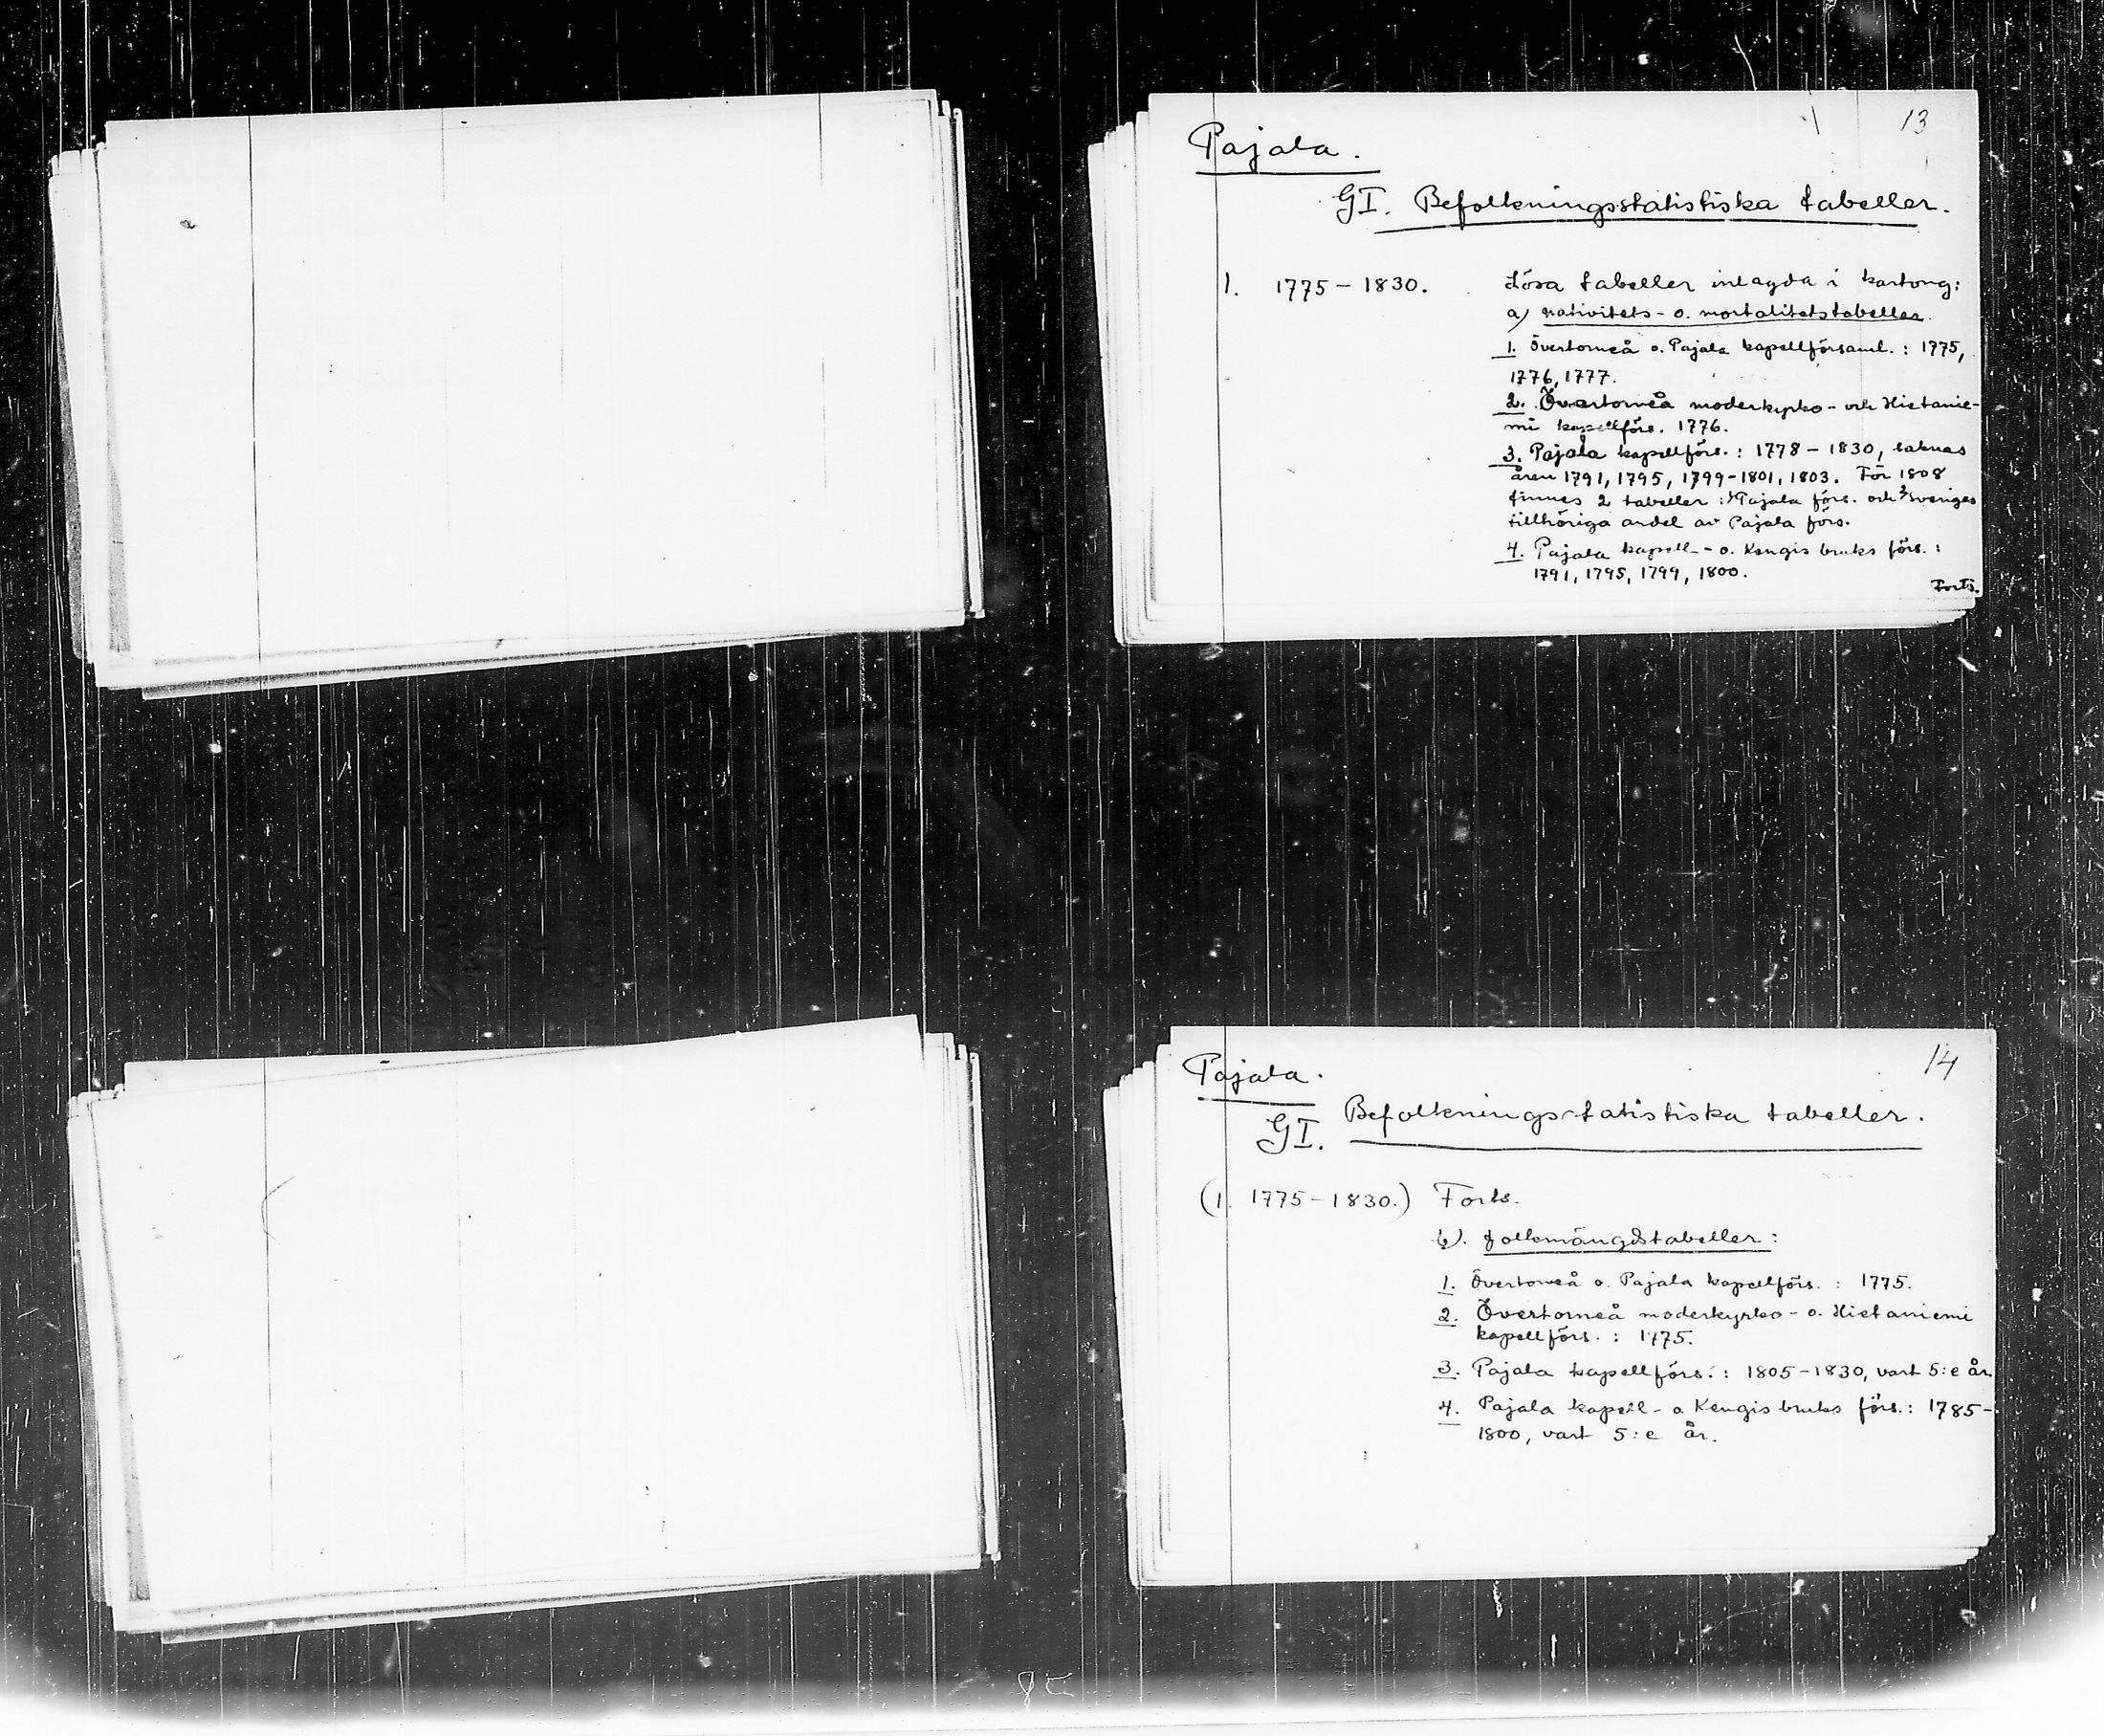 13
Pajala.
GI. Befolkningsstatistiska tabeller.
1. 1775–1830. Lösa tabeller inlagda i kartong:
a) nativitets- o. mortalitetstabeller.
1. Övertorneå o. Pajala kapellförsaml. : 1775,
1776, 1777.
2. Övertorneå moderkyrko- och Hietanie-
mi kapellförs. 1776.
3. Pajala kapellförs. : 1778–1830, saknas
åren 1791, 1795, 1799–1801, 1803. För 1808
finnes 2 tabeller : Pajala förs. och Sveriges
tillhöriga andel av Pajala förs.
4. Pajala kapell- o. Kengis bruks förs. :
1791, 1795, 1799, 1800.
Forts.
14
Pajala.
GI. Befolkningsstatistiska tabeller.
(1. 1775–1830.) Forts.
b). folkmängdstabeller :
1. Övertorneå o. Pajala kapellförs. : 1775.
2. Övertorneå moderkyrko- o. Hietaniemi
kapellförs. : 1775.
3. Pajala kapellförs. : 1805–1830, vart 5:e år.
4. Pajala kapell- o Kengis bruks förs. : 1785–
1800, vart 5:e år.